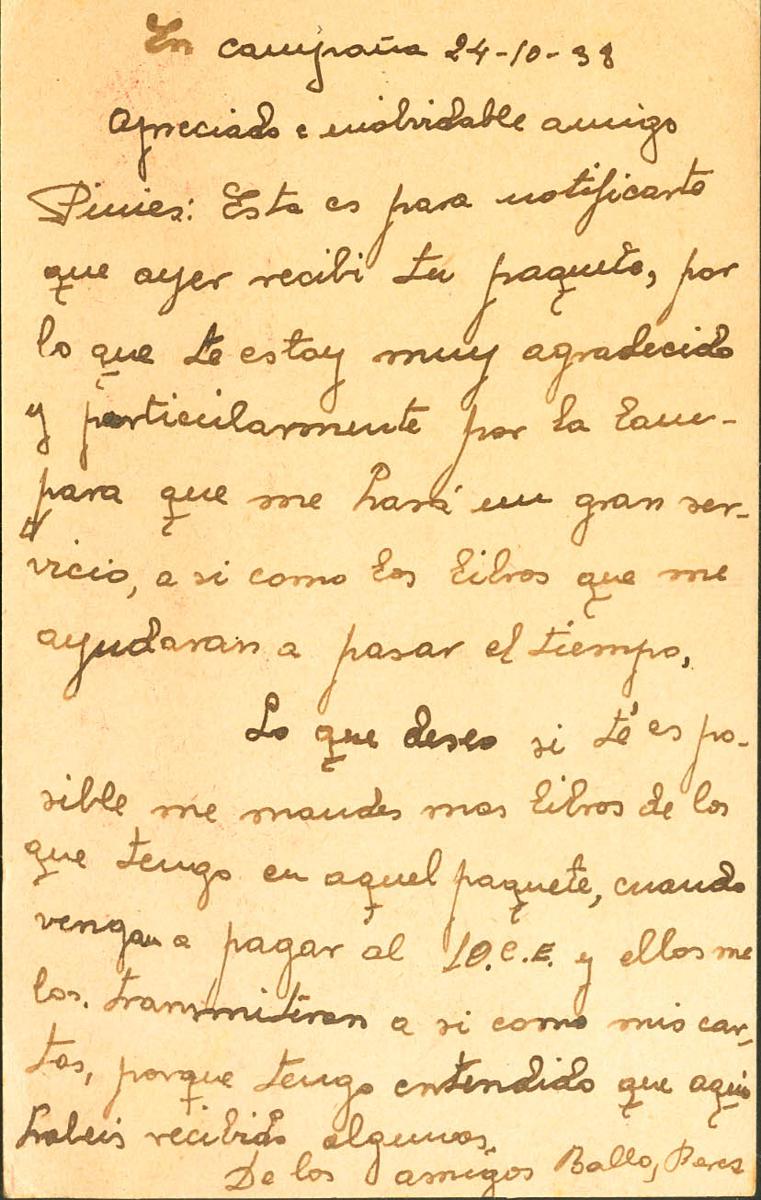 En campaña 24-10-38
Apreciado e inolvidable amigo
Pinies: Esta es para notificarte
que ayer recibi tu paquete, por
lo que te estoy muy agradecido
y particularmente por la lam-
para que me hará un gran ser-
vicio, a si como los libros que me
ayudaran a pasar el tiempo,
Lo que deseo si te es po-
sible me mandes mas libros de los
que tengo en aquel paquete, cuando
vengan a pagar al y ellos me
los transmitiran a si como mis car-
tas, porque tengo entendido que aqui
habeis recibido algunas.
De los amigos Ballo, Perez